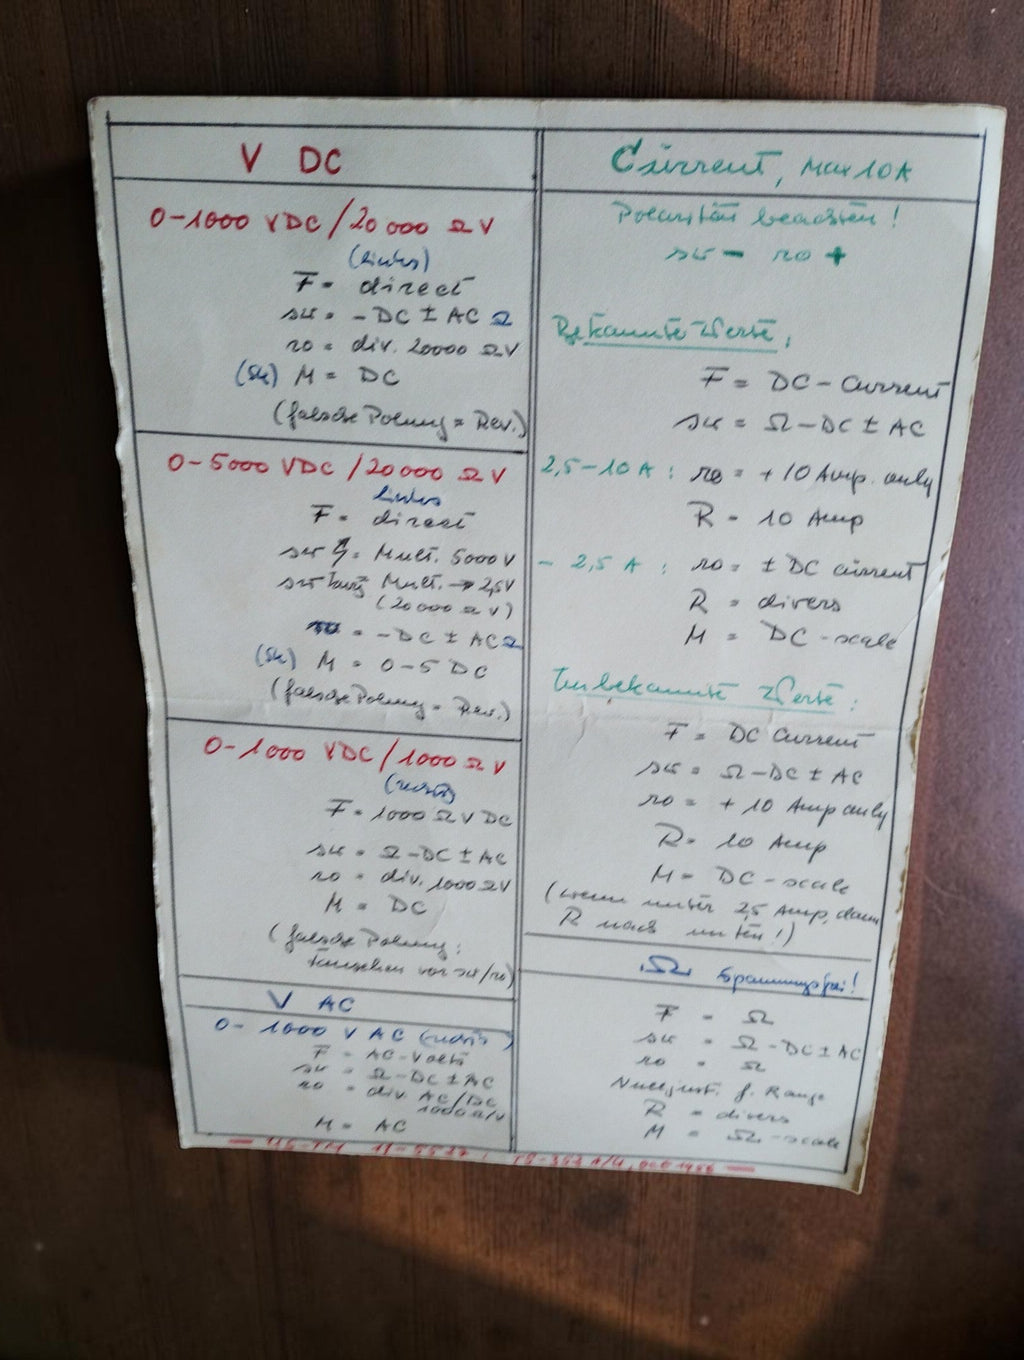 V DC
0-1000 VDC/20 000 Ω V
(links)
F = direct
sw = -DC ± AC Ω
ro = div. 20000 Ω V
(Sk) M = DC
(falsche Polung = Rev.)
0-5000 VDC/20 000 Ω V
links
F = direct
sw = Mult. 5000 V
sw Mult. → 2,5V
(20 000 Ω V)
= -DC ± AC Ω
(Sk) M = 0-5 DC
(falsche Polung = Rev.)
0-1000 VDC/1000 Ω V
(rechts)
F = 1000 Ω V DC
sw = Ω-DC ± AC
ro = div. 1000 Ω V
M = DC
(falsche Polung:
tauschen von sw/ro)
V AC
0-1000 V AC (rechts)
F = AC-Volts
sw = Ω-DC ± AC
ro = div. AC/DC
1000 Ω/V
M = AC
Current, Max 10A
Polarität beachten!
sw - ro +
Bekannte Werte:
F = DC-Current
sw = Ω-DC ± AC
2,5-10 A: ro = +10 Amp. only
R = 10 Amp
- 2,5 A: ro = ± DC current
R = divers
M = DC-scale
Unbekannte Werte:
F = DC Current
sw = Ω-DC ± AC
ro = + 10 Amp only
R = 10 Amp
M = DC-scale
(wenn unter 2,5 Amp, dann
R nach unten!)
Ω Spannungsfrei!
F = Ω
sw = Ω-DC ± AC
ro = Ω
Nulljust. f. Range
R = divers
M = Ω-scale
— US-TM 11-5527; TS-352 A/U, 1956 —